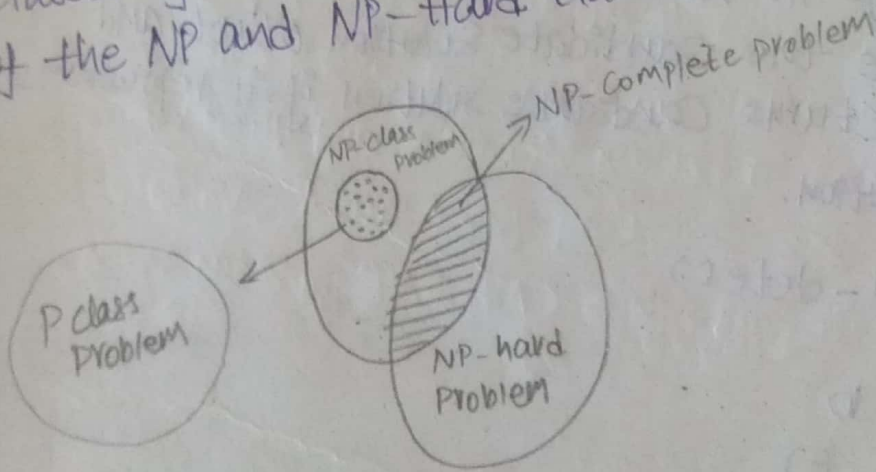 the NP and NP-Hard
NP-Complete problem
NP-class
problem
P class
problem
NP-hard
problem